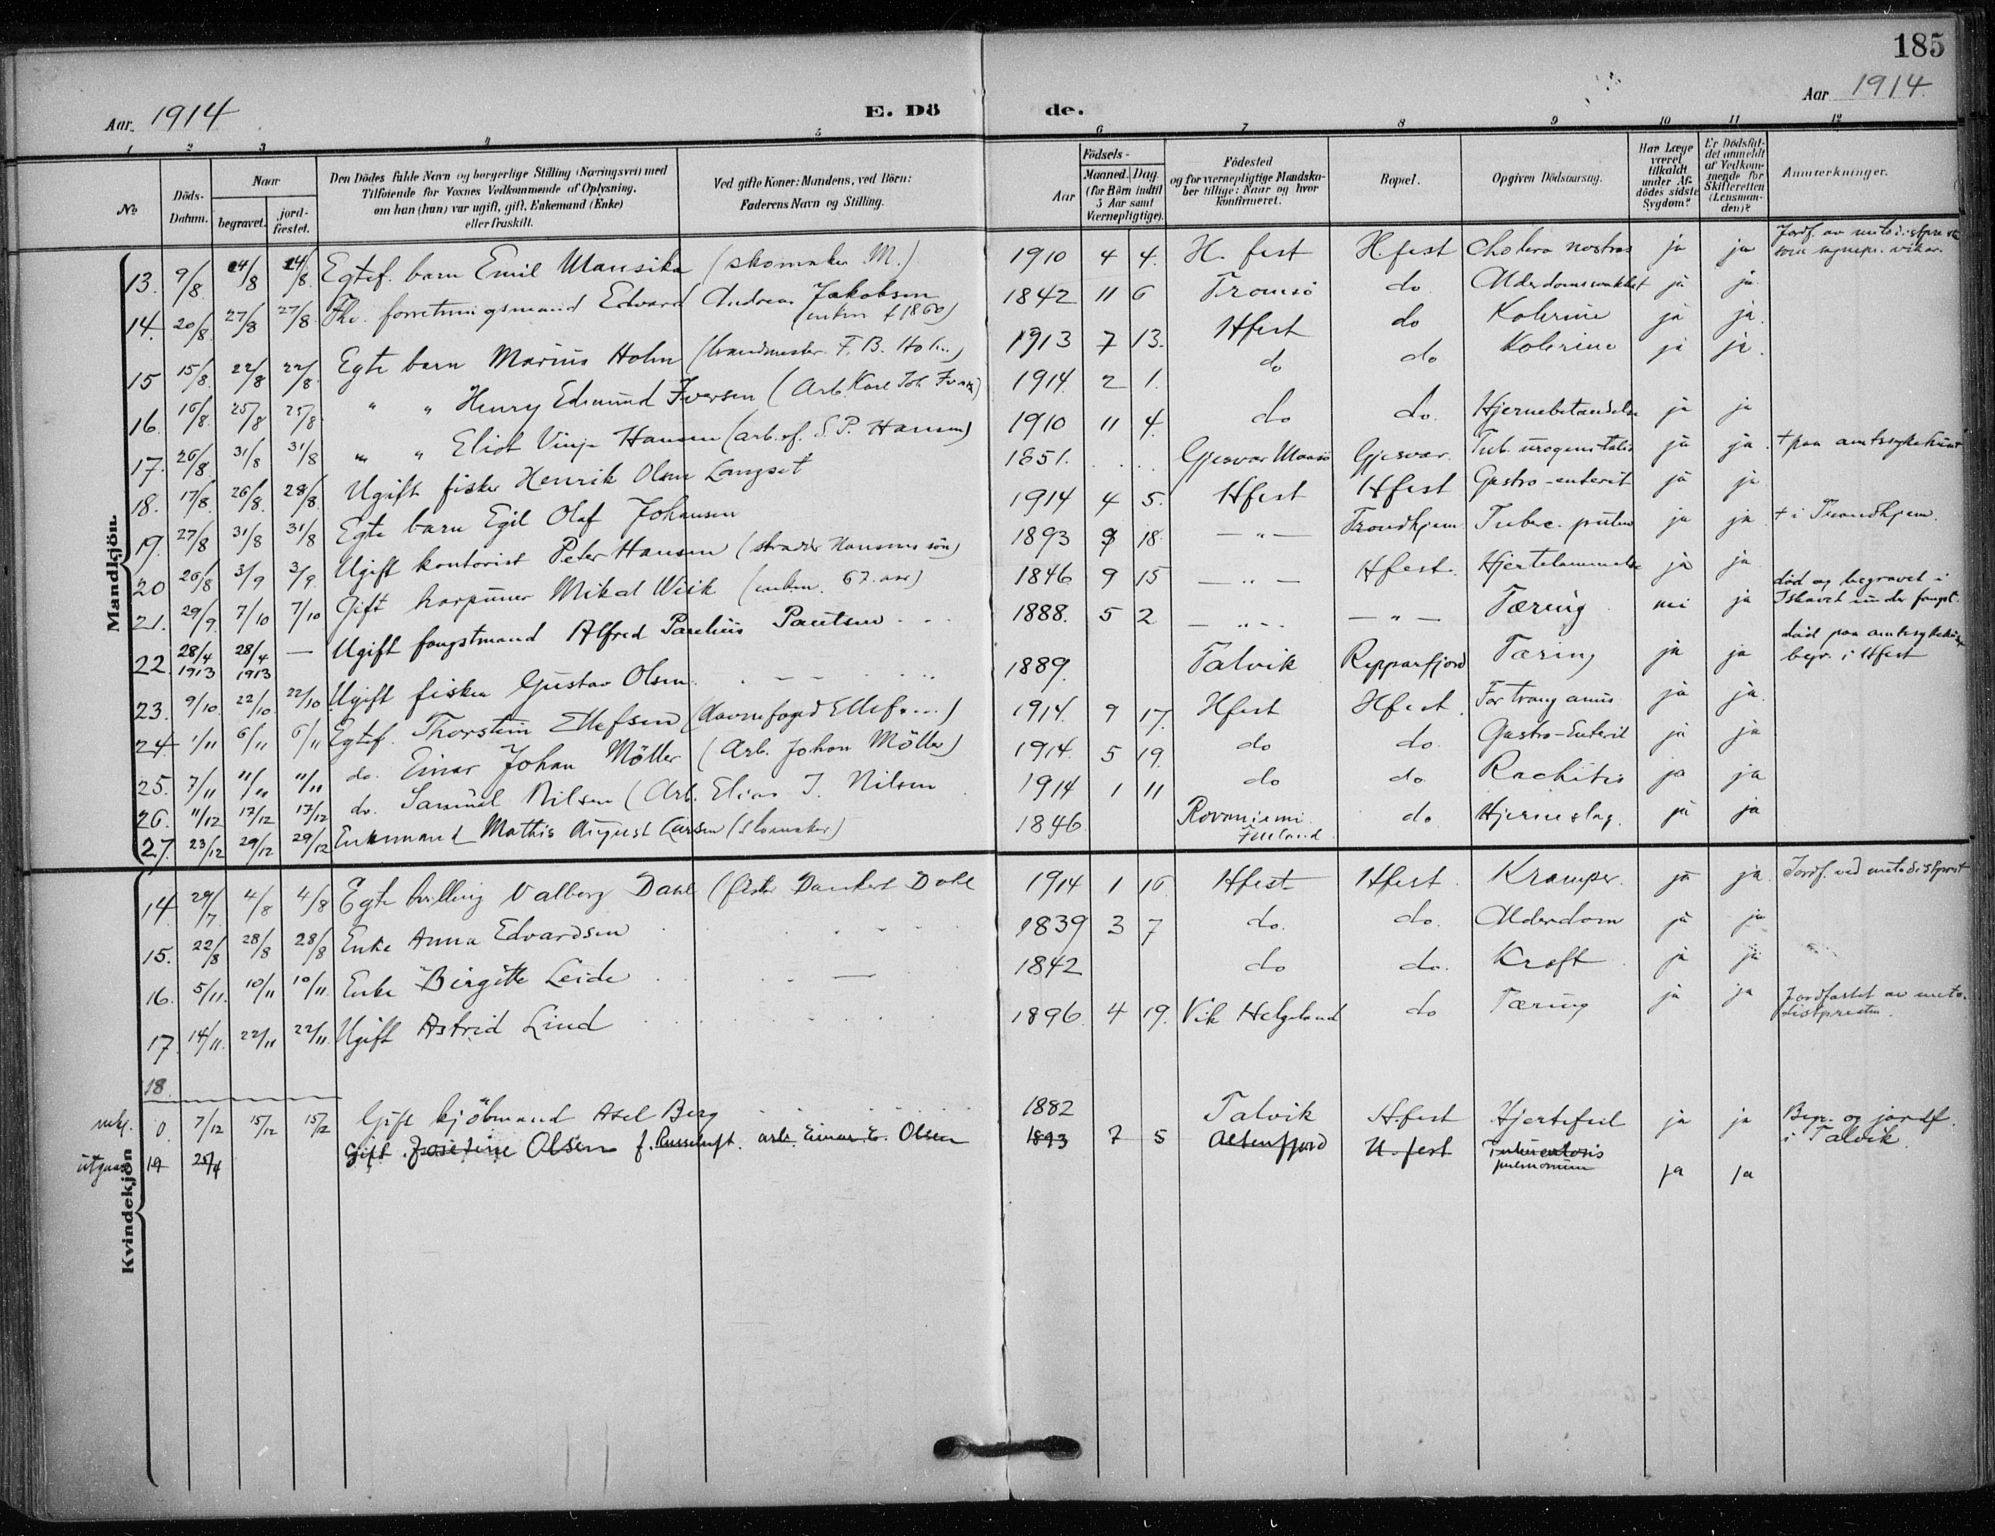 185
Aar 1914
E. Dö de.
Aar 1914
1 2 3 4 5 6 7 8 9 10 11 12
No.
Döds-Datum.
Naar
begravet.
jord-fæstet.
Den Dödes fulde Navn og borgerlige Stilling (Næringsvei) med
Tilföiende for Voxnes Vedkommende af Oplysning.
om han (hun) var ugift, gift, Enkemand (Enke)
eller fraskilt.
Ved gifte Koner: Mandens, ved Börn:
Faderens Navn og Stilling.
Födsels-
Aar
Maaned. Dag.
(for Börn indtil
5 Aar samt
Værnepligtige).
Födested
og for værnepligtige Mandska-
ber tillige: Naar og hvor
konfirmeret.
Bopæl.
Opgiven Dödsaarsag.
Har Læge
været
tilkaldt
under Af-
dödes sidste
Sygdom?
Er Dödsfal-
det anmeldt
af Vedkom-
mende for
Skifteretten
(Lensman-
den)?
Anmærkninger.
Mandkjön.
13. 9/8 24/8 24/8 Egtef. barn Emil Mansika (skomaker M.) 1910 4 4. H. fest H.fest Cholera nostras ja ja
14. 20/8 27/8 27/8 Fhv. forretningsmand Edvard Andreas Jakobsen 1842 11 6 Tromsö do Alderdomssvakhet ja ja
15 15/8. 22/8 22/8. Egte barn Marius Holm (brandmester F. B. Holm) 1913 7 13. Hfest do Kolerine ja ja.
16. 16/8. 25/8 25/8. " " Henry Edmund Iversen (Arb. Karl Joh. Iversen) 1914. 2 1. do do Kolerine ja ja.
17. 26/8. 31/8 31/8 " " Eliot Vinje Hansen (arb. of. S. P. Hansen) 1910 11 4. do do. Hjernebetændelse ja ja
18. 17/8. 26/8. 28/8. Ugift fisker Henrik Olsen Langset 1851. Gjesvar Maasö Gjesvær. Tub. urogenitalis ja ja. + paa amtssykehuset
19. 27/8 31/8 31/8 Egte barn Egil Olaf Johansen 1914 4 5. Hfest Hfest Gastro-enterit ja ja.
20 26/8 3/9 3/9. Ugift kontorist Peter Hansen 1893 9 18. — " — Trondhjem Tuberc. pulm ja ja + i Trondhjem.
21. 29/9. 7/10 7/10 Gift harpuner Mikal Wiik (enkm. 67 aar) 1846 9 15 — " — Hfest. Hjertelammelse ja ja
22. 28/4 1913 28/4 1913 — Ugift fangstmand Alfred Paulius Paulsen 1888. 5 2 — " — — " — Tæring nei ja död og begravet i Ishavet under fangst.
23. 9/10. 22/10. 22/10 Ugift fisker Gustav Olsen. 1889. Talvik Repparfjord Tæring ja ja död paa amtssykehuset begr. i Hfest
24. 1/11 6/11 6/11 Egtef. Thorstein Ellefsen (Havnefoged Ellefsen) 1914. 9 17. Hfest Hfest. For trang anus ja ja.
25. 7/11 11/11 11/11 do. Einar Johan Möller (Arb. Johan Möller) 1914. 5 19. do do. Gastro-Enterit ja ja
26. 11/12 17/12 17/12 do. Samuel Nilsen (Arb. Elias J. Nilsen 1914 1 11 do do Rachitis ja ja
27. 23/12 29/12 29/12 Enkemand Mathis August Larsen (skomaker) 1846. Rovaniemi Finland. do. Hjerneslag. ja ja
Kvindekjön
14 29/7. 4/8 4/8 Egte tvilling Valborg Dahl (fisker Dankert Dahl 1914 1 16 Hfest Hfest. Kramper. ja ja Jordf. ved metodistprest
15. 22/8 28/8 28/8 Enke Anna Edvardsen 1839 3 7 do. do. Alderdom ja ja
16. 5/11. 10/11 10/11. Enke Birgitte Leide 1842 do do. Kræft ja ja
17. 14/11. 22/11 22/11. Ugift Astrid Lind 1896. 4 19. Vik Helgeland do Tæring ja ja Jordfæstet av metodistpresten.
18.
0. 7/12 15/12 15/12 Gift kjöbmand Axel Berg 1882 Talvik H.fest Hjertefeil ja ja Begr. og jordf. i Talvik.
utgaar 19 25/4 Gift. Josefine Olsen f. Russeluft. arb. Einar E. Olsen 1893 7 5 Altenfjord H. fest Tuberculosis pulmonum ja ja